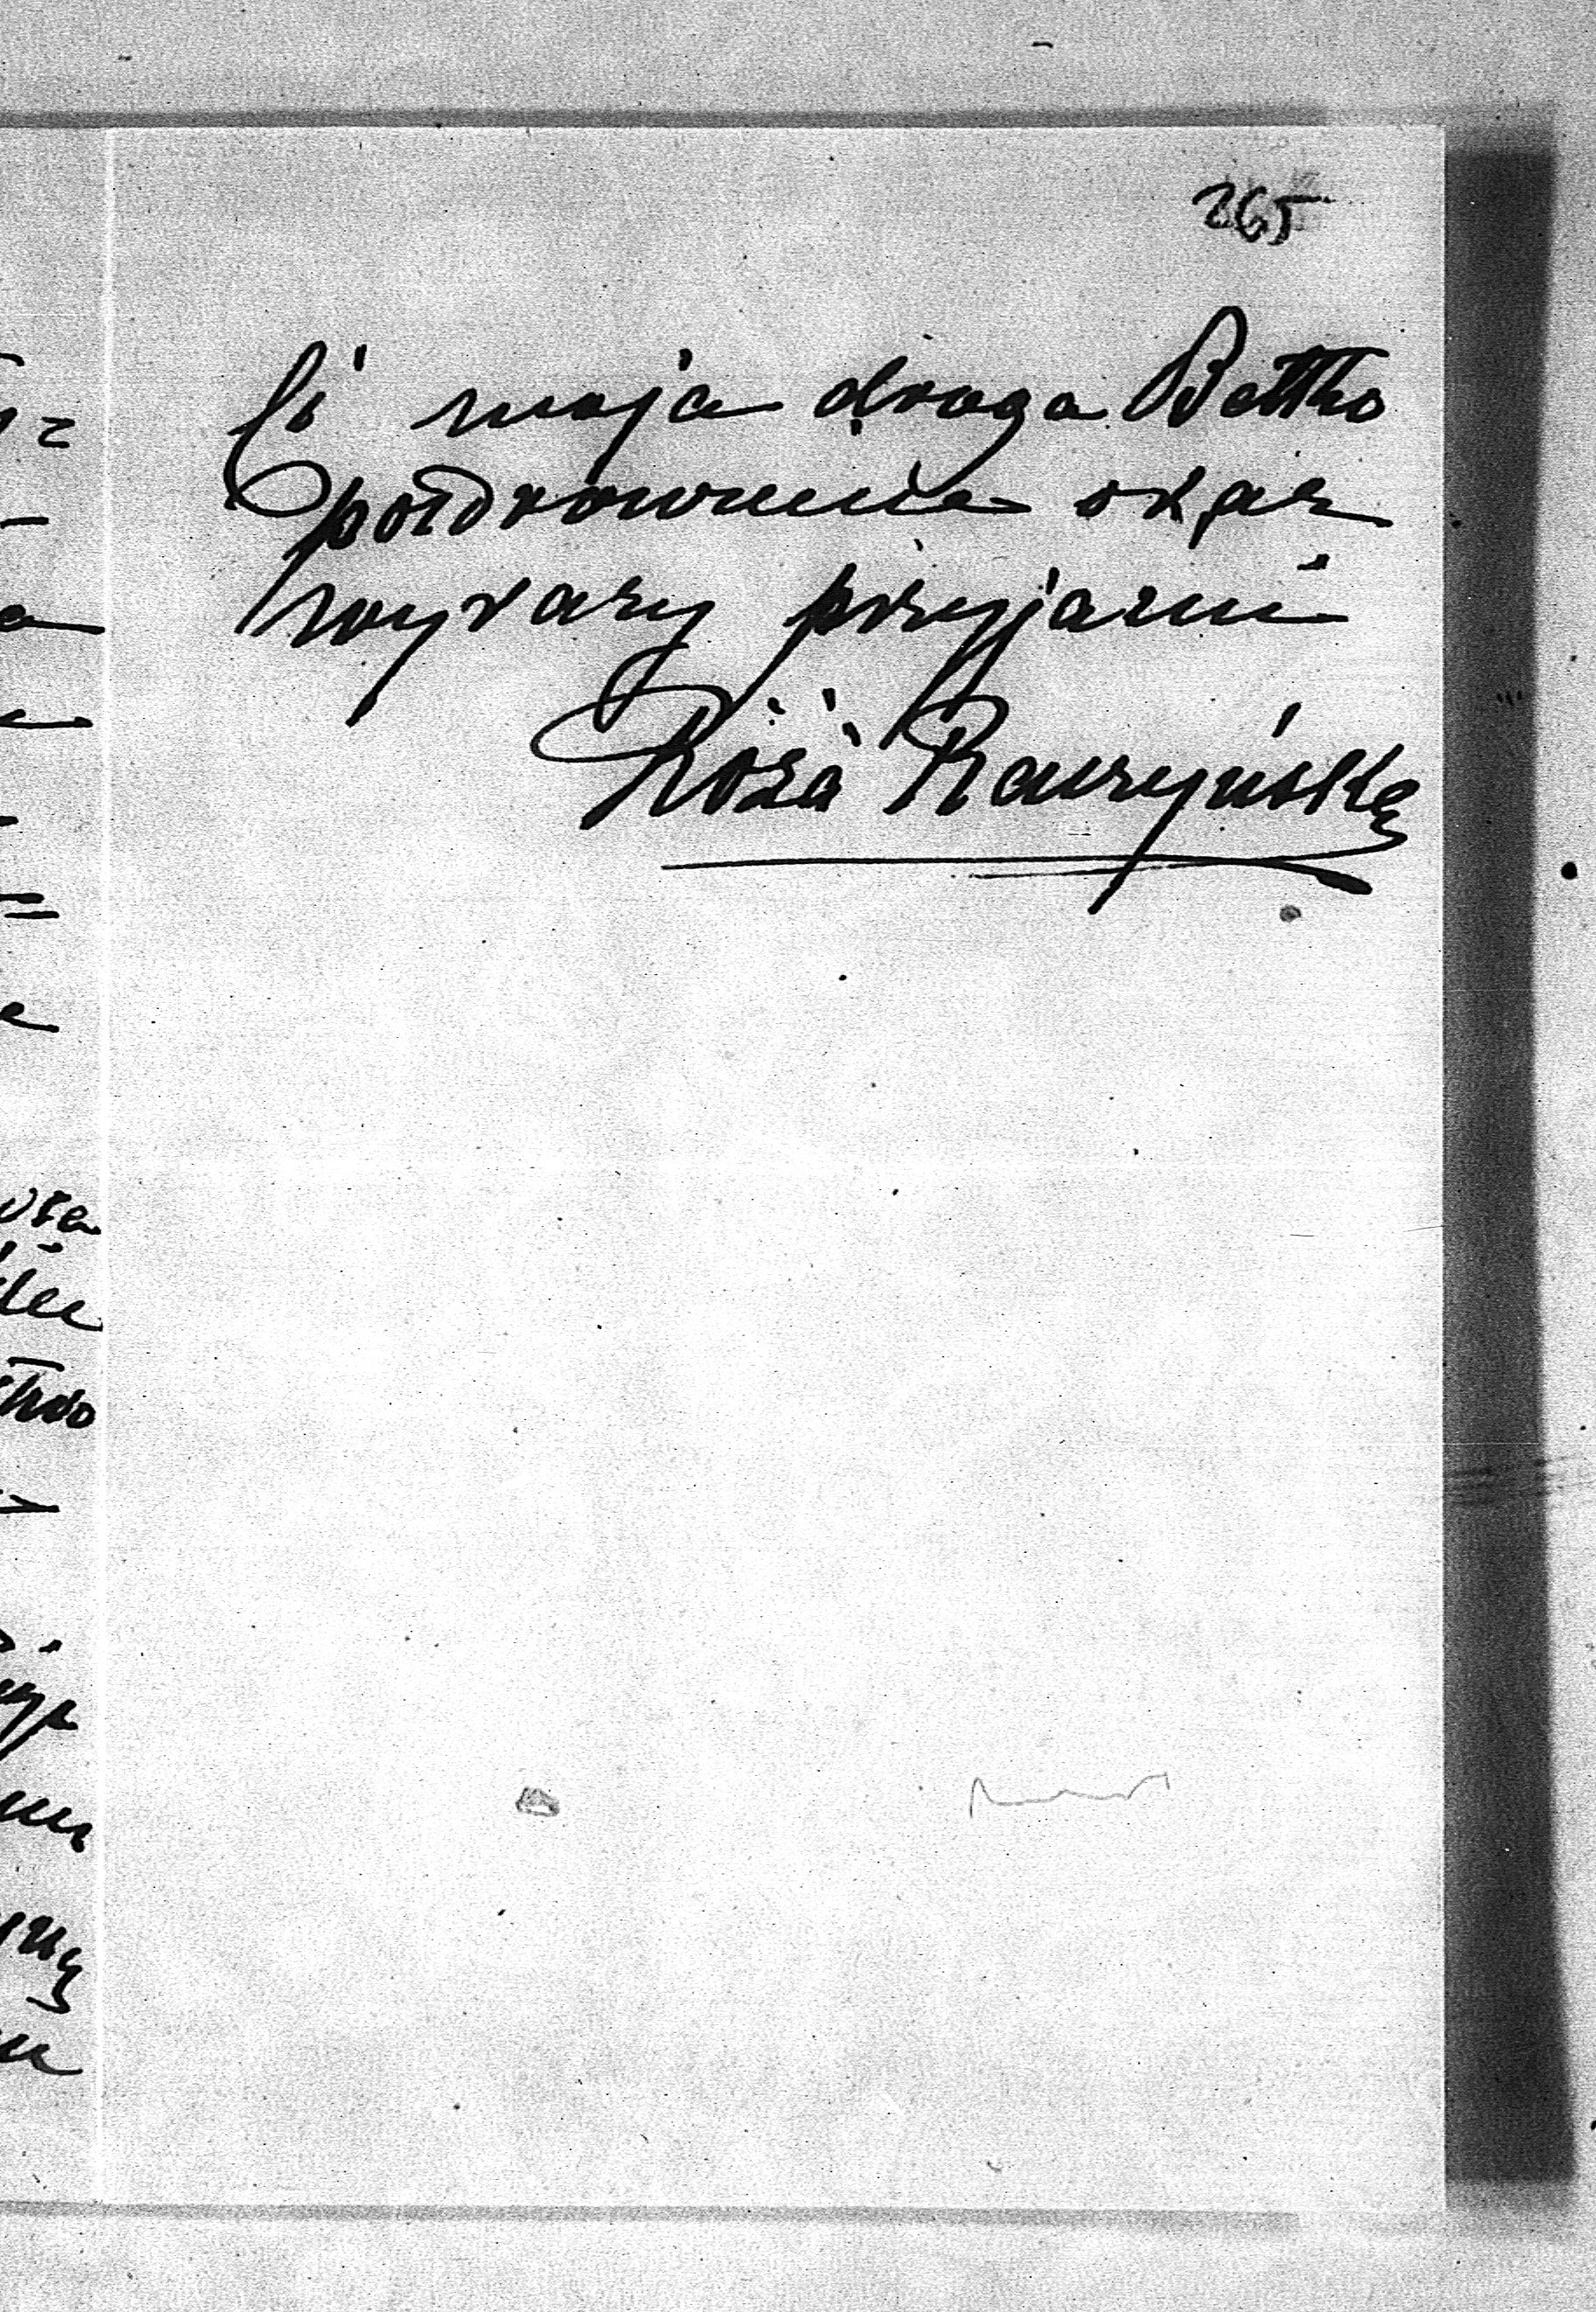 265
Ci moja droga Bettko
pozdrowienie oraz
wyrazy przyjaźni
Róża Raczyńska